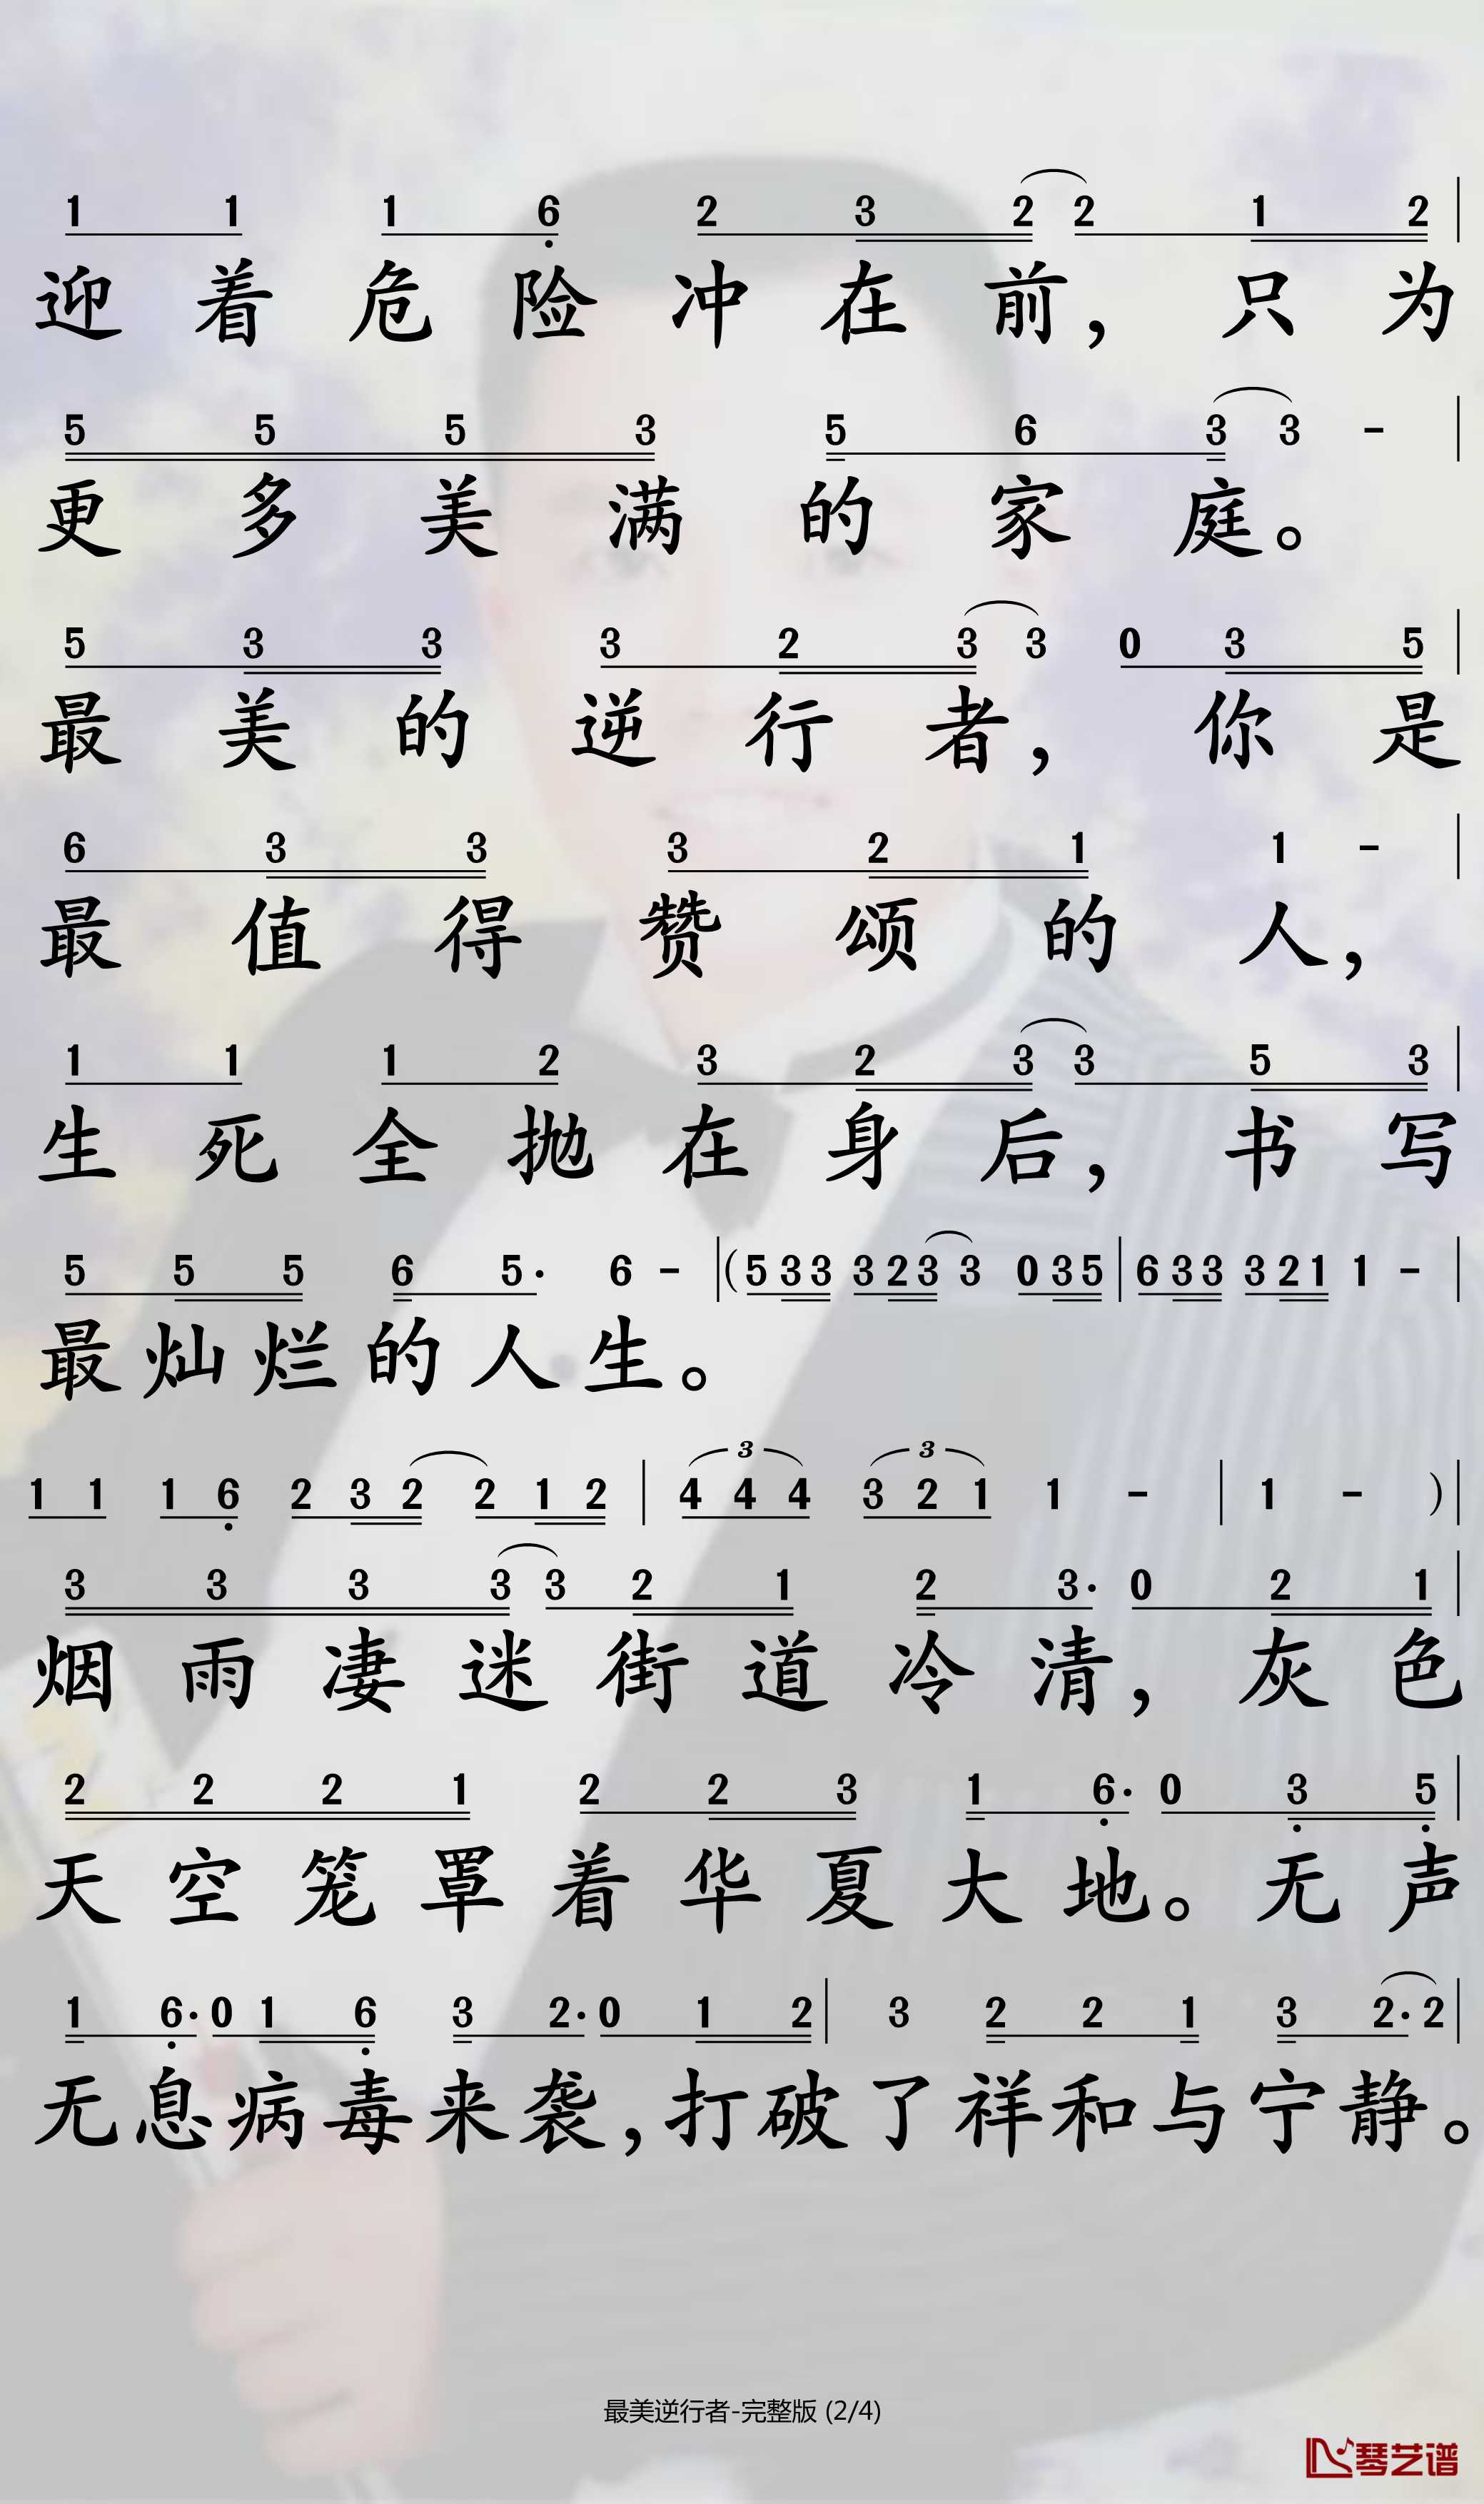 1 1 1 6 2 3 2 2 1 2
迎着危险冲在前，只为
5 5 5 3 5 6 3 3 -
更多美满的家庭。
5 3 3 3 2 3 3 0 3 5
最美的逆行者，你是
6 3 3 3 2 1 1 -
最值得赞颂的人，
1 1 1 2 3 2 3 3 5 3
生死全抛在身后，书写
5 5 5 6 5· 6 - | (5 3 3 3 2 3 3 0 3 5 | 6 3 3 3 2 1 1 - |
最灿烂的人生。
1 1 1 6 2 3 2 2 1 2 | 4 4 4 3 2 1 1 - | 1 - ) |
3 3
3 3 3 3 3 2 1 2 3· 0 2 1
烟雨凄迷街道冷清，灰色
2 2 2 1 2 2 3 1 6· 0 3 5
天空笼罩着华夏大地。无声
1 6· 0 1 6 3 2· 0 1 2 | 3 2 2 1 3 2· 2 |
无息病毒来袭，打破了祥和与宁静。
最美逆行者-完整版 (2/4)
琴艺谱